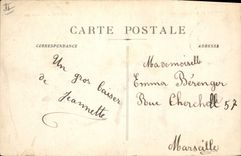 CARTE POSTALE
CORRESPONDANCE
ADRESSE
Un gros baiser
de
Jeannette
Mademoiselle
Emma Bérenger
Rue Cherchell 57
Marseille